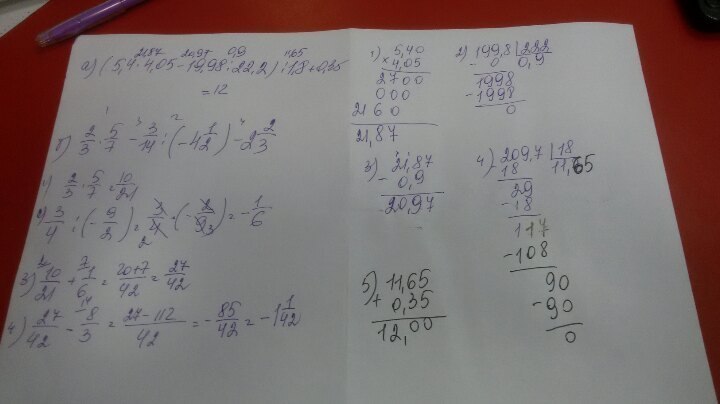 21,87 20,97 0,9 11,65
а) (5,4 · 4,05 - 19,98 : 22,2) : 1,8 + 0,35
= 12
1 3 2 4
б) 2/3 · 5/7 - 3/14 : (-4 1/2) - 2 2/3
1) 2/3 · 5/7 = 10/21
2) 3/4 : (-9/2) = 3/4 · (-2/9) = -1/6
2 3
3) 10/21 + 1/6 = 20+7/42 = 27/42
4) 27/42 - 8/3 = 27-112/42 = -85/42 = -1 1/42
1) 5,40
× 4,05
2700
000
2160
21,87
2) 199,8 | 222
- 0 0,9
1998
- 1998
0
3) 21,87
- 0,9
20,97
4) 209,7 | 18
- 18 11,65
29
- 18
117
- 108
90
- 90
0
5) 11,65
+ 0,35
12,00